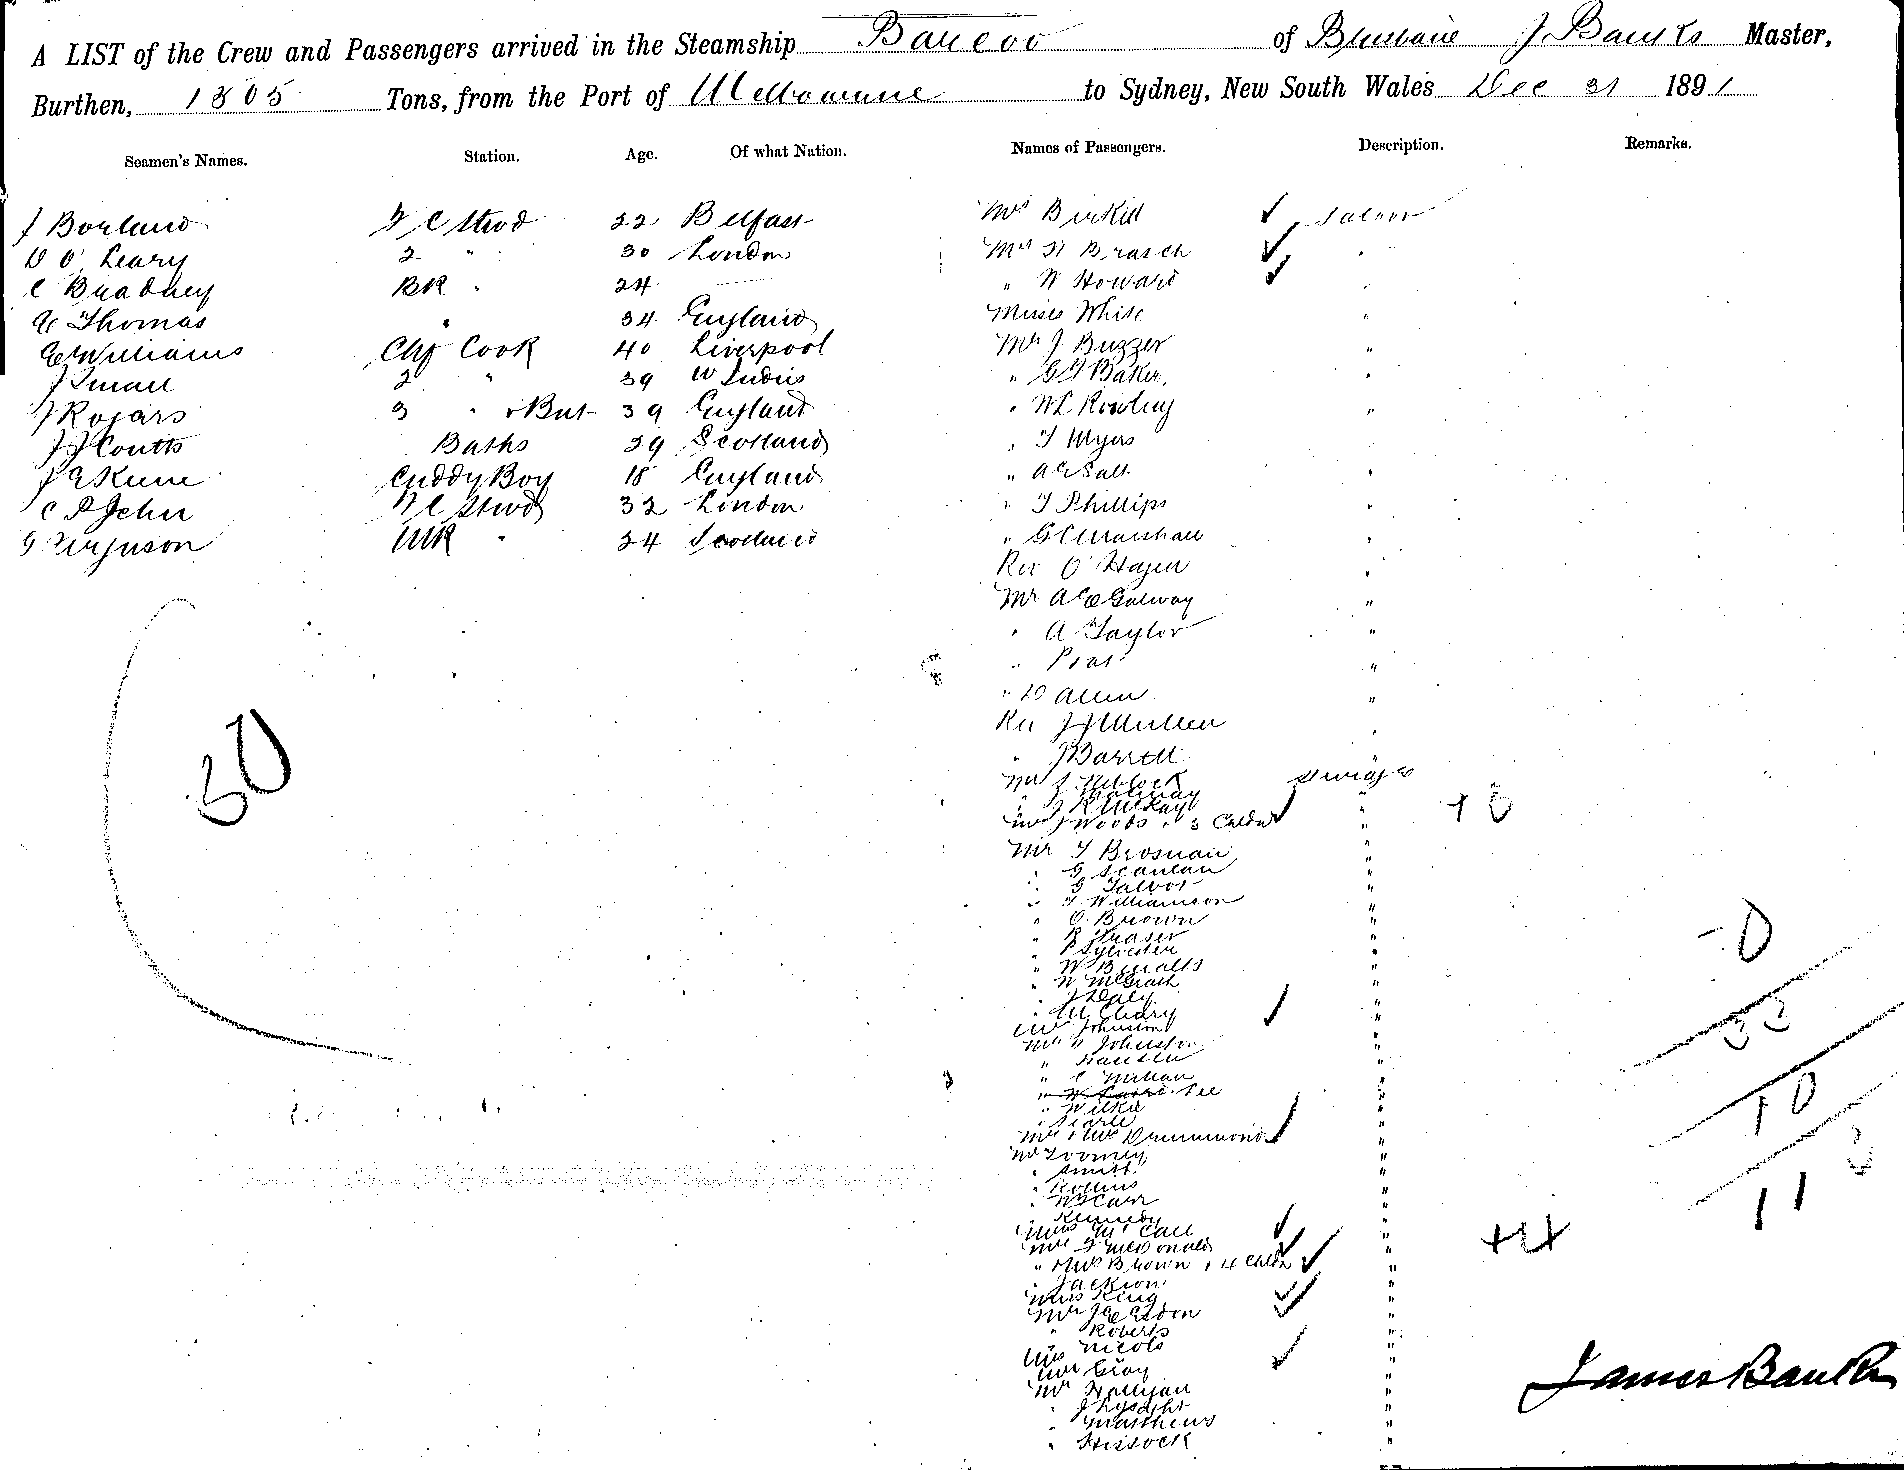 A LIST of the Crew and Passengers arrived in the Steamship Barcoo of Brisbane J Banks Master,
Burthen, 1505 Tons, from the Port of Melbourne to Sydney, New South Wales Dec 31 1891
Seamen's Names. Station. Age. Of what Nation. Names of Passengers. Description. Remarks.
J Borland F C Stwd 22 Belfast
D O'Leary 2 " 30 London
C Bradney BR " 24
C Thomas " 34 England
E Williams Chf Cook 40 Liverpool
J Small 2 " 39 W Indies
J Rogars 3 " & But 39 England
J J Coutts Baths 29 Scotland
J E Keene Cuddy Boy 18 England
C P John F C Stwd 32 London
G Ferguson MR " 24 Scotland
50
Mrs Birkid Saloon
Mrs H Brasch "
" W Howard "
Misses White "
Mr J Buzzer "
" G F Baker "
" W L Rowley "
" T Myers "
" A E Salt "
" T Phillips "
" G C Marshall "
Rev O'Hagen "
Mr A C Galway "
" A Taylor "
" Prat "
" D Allen "
Rev J J Mullen "
" J Barrett
Mr J Niblock Steerage
" J R McKay "
Mrs J Woods & 3 Childn "
+3
Mr T Brosnan "
" G Scanlan "
" G Talbot "
" T Williamson "
" O Brown "
" R Fraser "
" P Sylvester "
" W McGrath "
" J Daly "
" M Cleary "
Mrs Johnston "
Mr Johnston "
" Hansen "
" Wilkie "
" Searle "
Mr & Mrs Drummond "
Mr Toomey "
" Smith "
" Rollins "
" W H Carr "
" Kennedy "
Miss McCall "
Mr J McDonald "
" & Mrs Brown & 4 Childn "
+4
" Jackson "
Miss King "
" Roberts "
Miss Nicols "
Mrs Gray "
Mr Halligan "
" J Lysaght "
" Matthews "
" Hissock "
10
11
James Banks